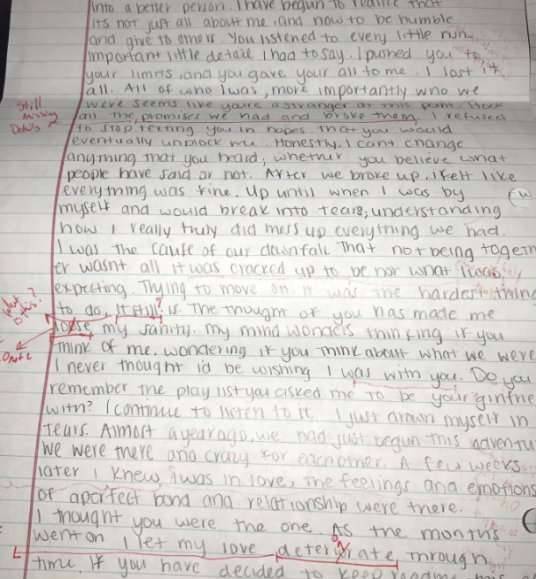 into a better person. I have begun to realize that
its not just all about me, and now to be humble
and give to others. You listened to every little nun
important little detail I had to say. I pushed you to
your limits and you gave your all to me. I lost it
all. All of who I was, more importantly who we
were seems like youre a stranger at this point.
all the promises we had and broke them. I refused
Still missing Dots
to stop texting you in hopes that you would
eventually unblock me. Honestly, I cant change
anything that you heard, whether you believe what
people have said or not. After we broke up, I felt like
everything was fine. Up until when I was by
myself and would break into tears, understanding
how I really truly did mess up everything we had.
I was the cause of our downfall. That not being togeth
er wasnt all it was cracked up to be nor what I was
expecting. Trying to move on it was the hardest thing
to do, it still? is. The thought of you has made me
loose my sanity. My mind wonders thinking if you
think of me. wondering if you think about what we were
I never thought id be wishing I was with you. Do you
remember the playlist you asked me to be your girlfrie
with? I continue to listen to it. I just drown myself in
tears. Almost a year ago, we had just begun this adventu
we were there and crazy for eachother. A few weeks
later I knew I was in love, the feelings and emotions
of a perfect bond and relationship were there.
I thought you were the one. As the months
went on I let my love deteriate, through
time. If you have decided to keep